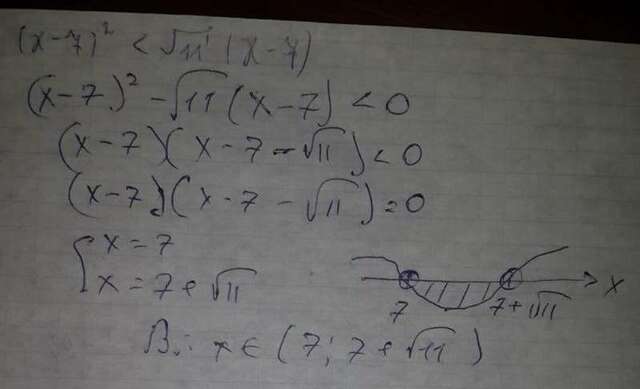 (x-7)² < √11 (x-7)
(x-7)² - √11 (x-7) < 0
(x-7)(x-7-√11) < 0
(x-7)(x-7-√11) = 0
{ x = 7
x = 7+√11
x
7 7+√11
В: x ∈ (7; 7+√11)